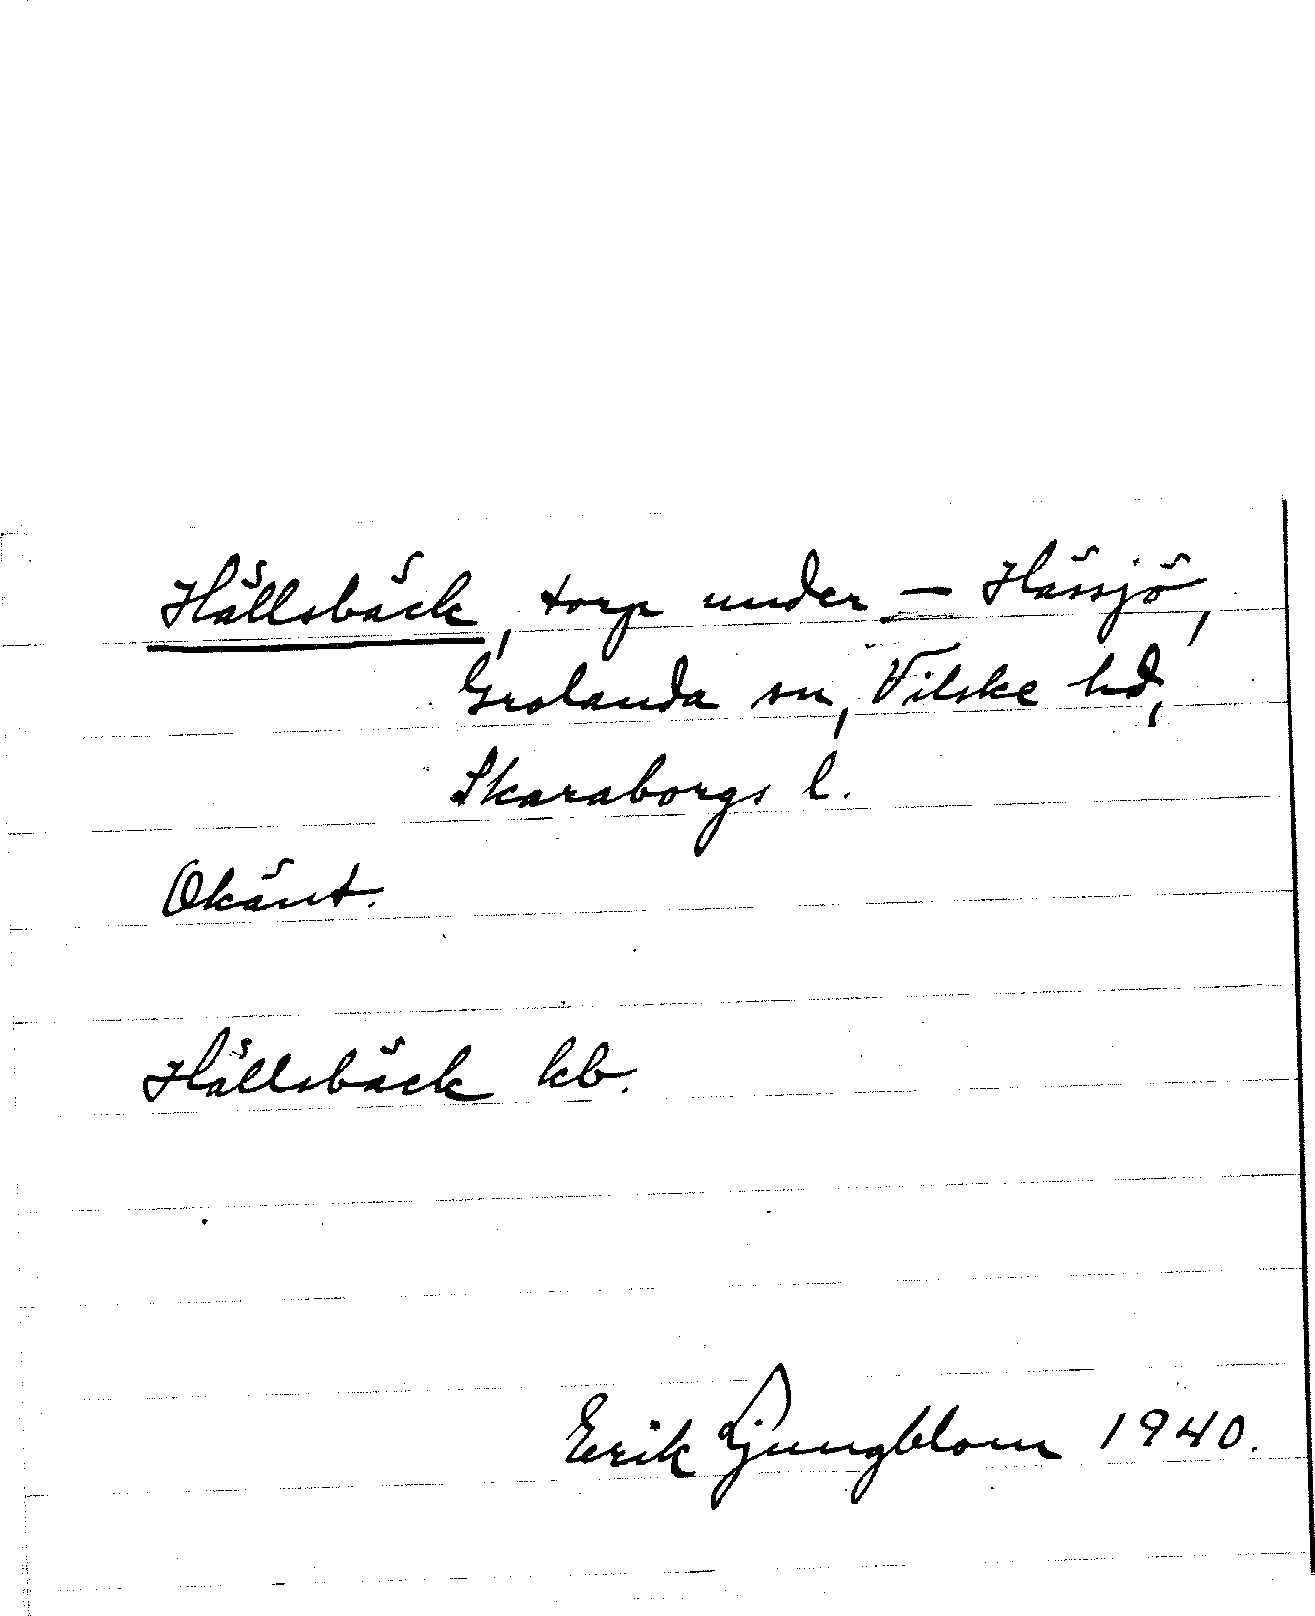 Hällsbäck, torp under — Hässjö,
Grolanda sn, Vilske hd,
Skaraborgs l.
Okänt.
Hällsbäck kb.
Erik Ljungblom 1940.